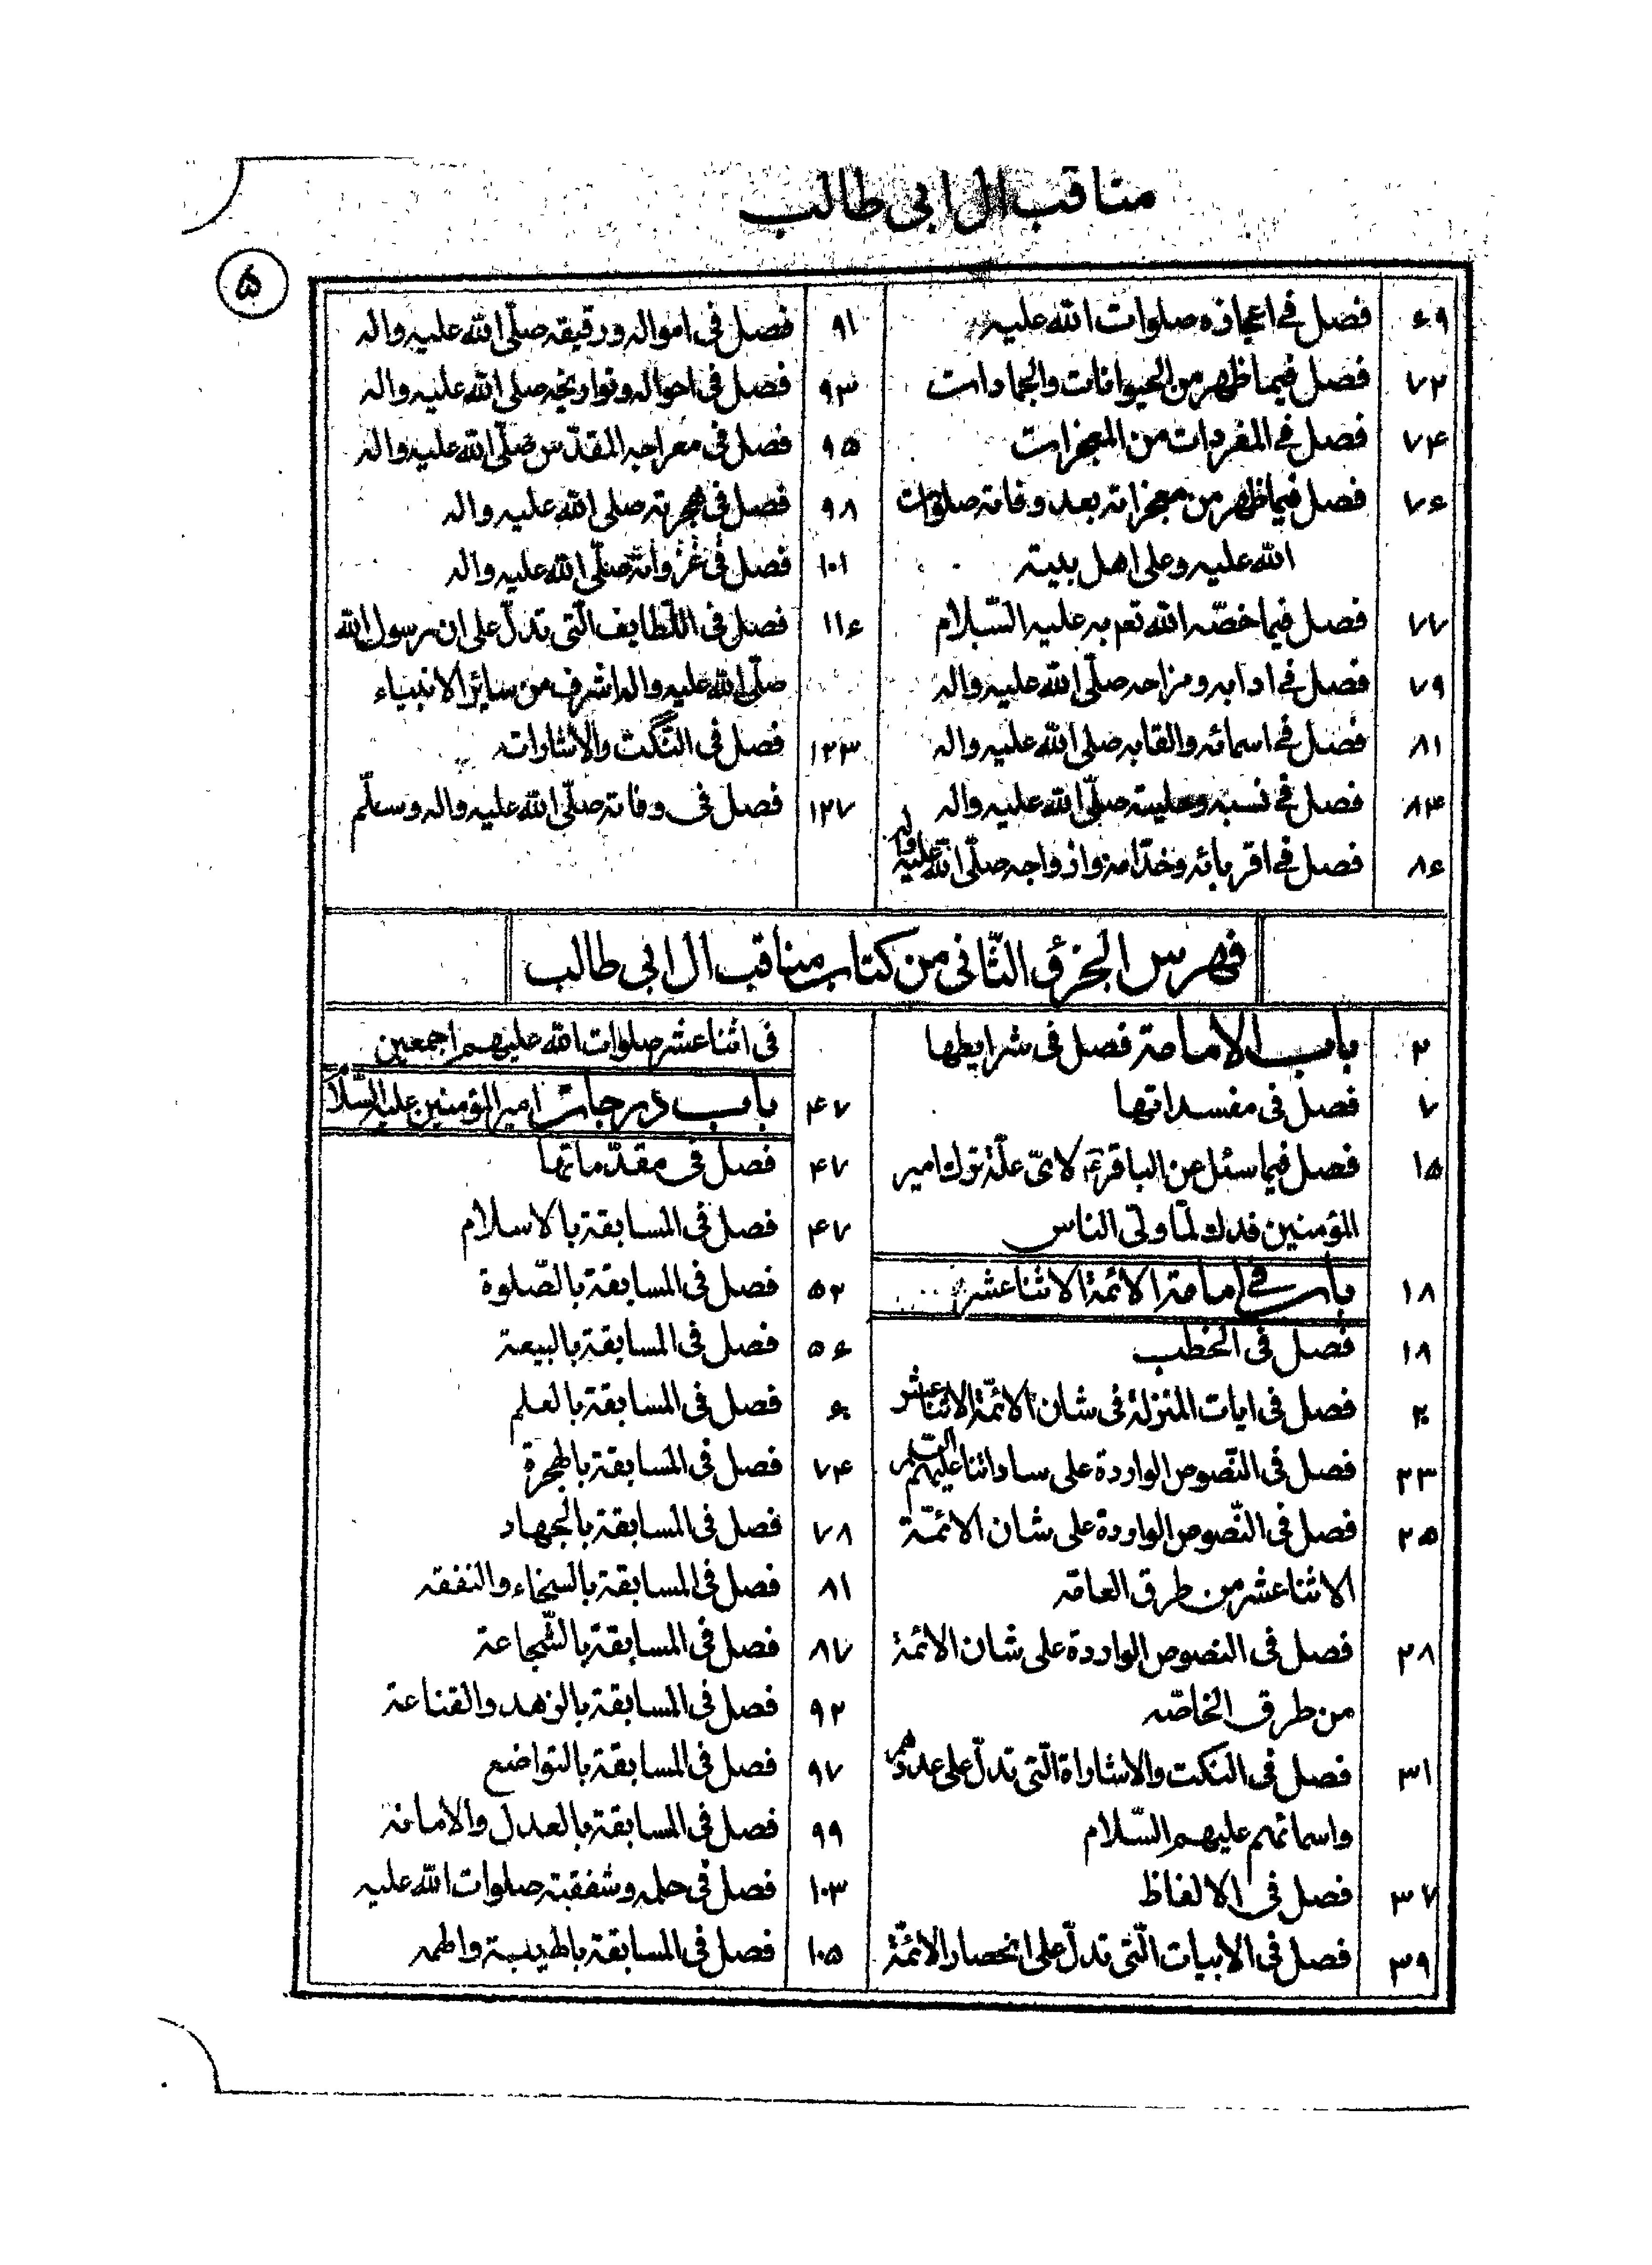 مناقب ال ابی طالب
۵
۶۹ فصل فی اعجازه صلوات الله علیه
۷۲ فصل فیما ظهر من الحیوانات والجمادات
۷۴ فصل فی المفردات من المعجزات
۷۶ فصل فیما ظهر من معجزاته بعد وفاته صلوات
الله علیه وعلی اهل بیته
۷۷ فصل فیما خصّه الله تعم به علیه السّلام
۷۹ فصل فی ادابه ومزاحه صلّی الله علیه واله
۸۱ فصل فی اسمائه والقابه صلی الله علیه واله
۸۴ فصل فی نسبه وحلیته صلّی الله علیه واله
۸۶ فصل فی اقربائه وخدّامه وازواجه صلّی الله علیه واله
۹۱ فصل فی امواله ورقیقه صلّی الله علیه واله
۹۳ فصل فی احواله وتواریخه صلی الله علیه واله
۹۵ فصل فی معراجه المقدّس صلّی الله علیه واله
۹۸ فصل فی هجرته صلی الله علیه واله
۱۰۱ فصل فی غزواته صلّی الله علیه واله
۱۱۶ فصل فی اللّطایف الّتی تدلّ علی ان رسول الله
صلّی الله علیه واله اشرف من سایر الانبیاء
۱۲۳ فصل فی النّکت والاشارات
۱۲۷ فصل فی وفاته صلّی الله علیه واله وسلّم
فهرس الجزؤ الثّانی من کتاب مناقب ال ابی طالب
۲ باب الامامة فصل فی شرایطها
۷ فصل فی مفسداتها
۱۵ فصل فیما سئل عن الباقر ع لایّ علّة ترك امیر
المؤمنین فدك لمّا ولّی الناس
۱۸ باب فی امامة الائمة الاثنا عشر
۱۸ فصل فی الخطب
۲۰ فصل فی ایات المنزلة فی شان الائمّة الاثنا عشر
۲۳ فصل فی النّصوص الواردة علی ساداتنا علیهم السّلم
۲۵ فصل فی النّصوص الواردة علی شان الائمّة
الاثنا عشر من طرق العامّه
۲۸ فصل فی النصوص الواردة علی شان الائمة
من طرق الخاصّه
۳۱ فصل فی النکت والاشاراة الّتی تدلّ علی عددهم
واسمائهم علیهم السّلام
۳۷ فصل فی الالفاظ
۳۹ فصل فی الابیات الّتی تدلّ علی انحصار الائمّة
فی اثنا عشر صلوات الله علیهم اجمعین
۴۷ باب درجات امیر المؤمنین علیه السّلام
۴۷ فصل فی مقدّماتها
۴۷ فصل فی المسابقة بالاسلام
۵۲ فصل فی المسابقة بالصّلوة
۵۶ فصل فی المسابقة بالبیعة
۶۰ فصل فی المسابقة بالعلم
۷۴ فصل فی المسابقة بالهجرة
۷۸ فصل فی المسابقة بالجهاد
۸۱ فصل فی المسابقة بالسخاء والنفقه
۸۷ فصل فی المسابقة بالشّجاعة
۹۲ فصل فی المسابقة بالزهد والقناعة
۹۷ فصل فی المسابقة بالتواضع
۹۹ فصل فی المسابقة بالعدل والامانه
۱۰۳ فصل فی حلمه وشفقته صلوات الله علیه
۱۰۵ فصل فی المسابقة بالهیبة والهمه